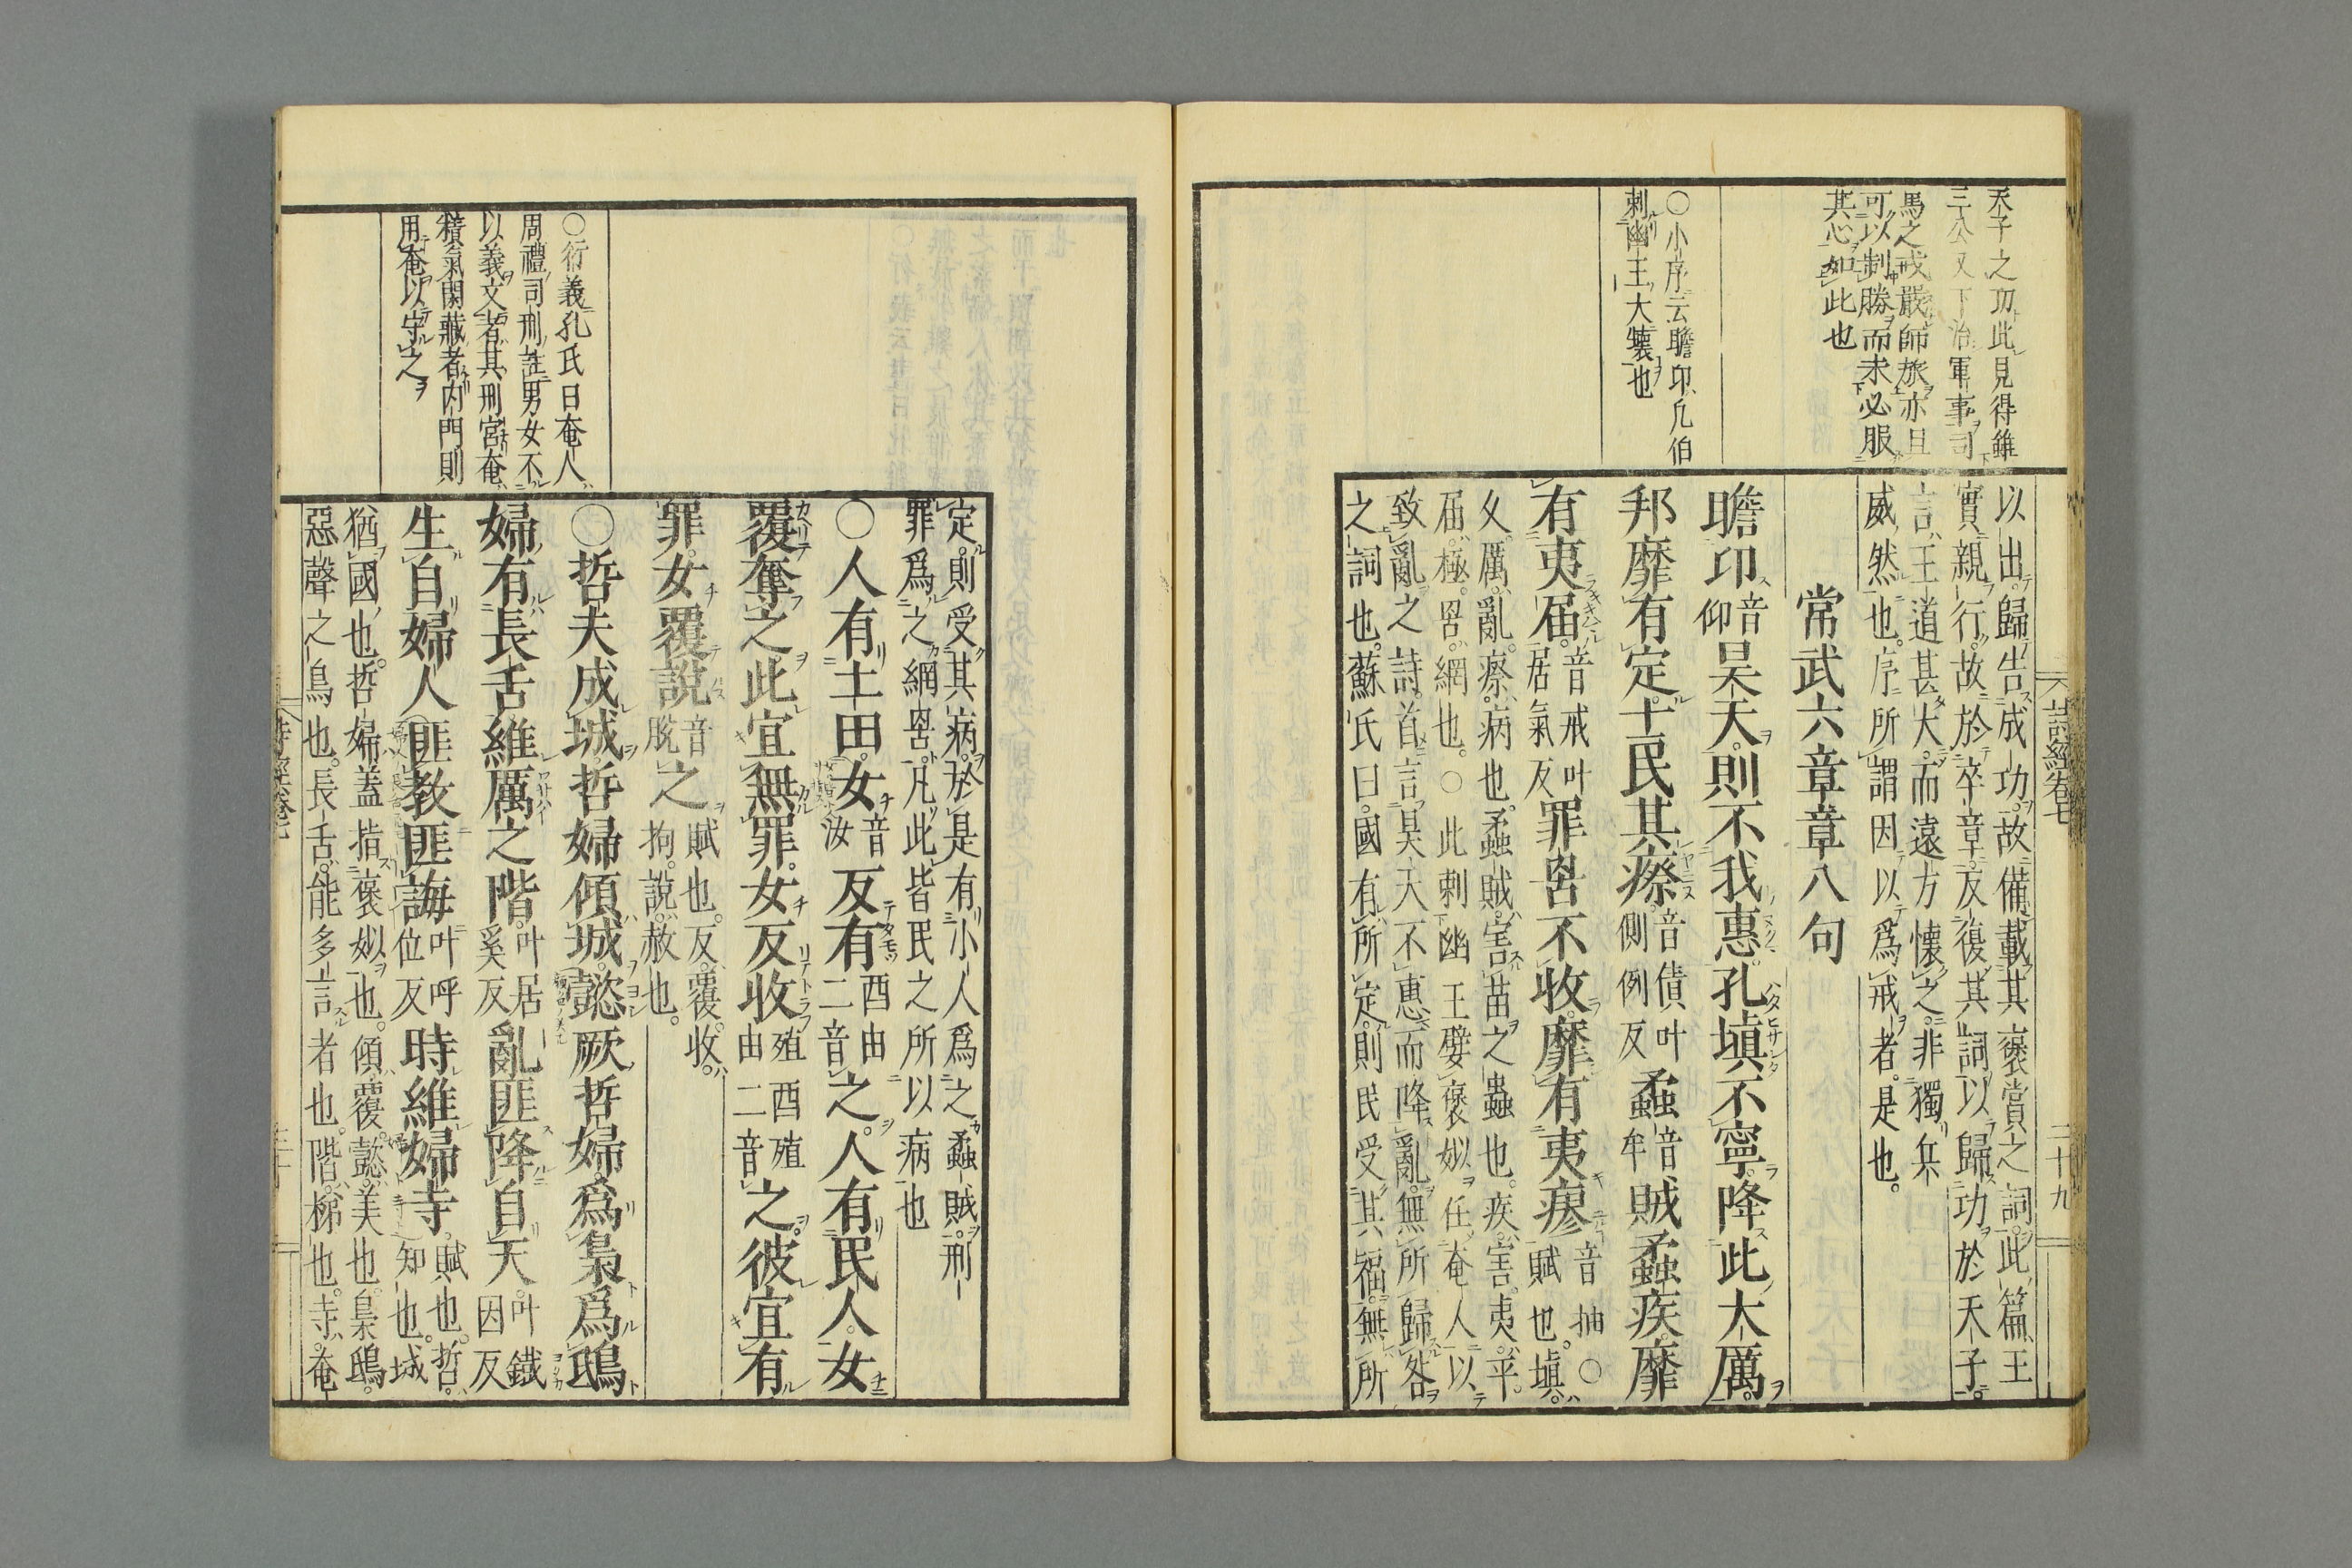 天子之功此見得雖
三公又下治軍事司
馬之戒嚴師旅亦且
可以制勝而未必服
其心如此也
○小序云瞻卬凡伯
刺幽王大壞也
詩經卷七
二十九
以出歸告成功故備載其褒賞之詞此篇王
實親行故於卒章反復其詞以歸功於天子
言王道甚大而遠方懷之非獨兵
威然也序所謂因以爲戒者是也
常武六章章八句
瞻卬音仰昊天則不我惠孔填不寧降此大厲
邦靡有定士民其瘵音債叶側例反蟊音牟賊蟊疾靡
有夷届音戒叶居氣反罪罟不收靡有夷瘳音抽○賦也填
久厲亂瘵病也蟊賊害苗之蟲也疾害夷平
届極罟網也○此刺幽王嬖褒姒任奄人以
致亂之詩首言昊天不惠而降亂無所歸咎
之詞也蘇氏曰國有所定則民受其福無所
○衍義孔氏曰奄人
周禮司刑註男女不
以義交者其刑宮奄
精氣閉藏者内門則
用奄以守之
定則受其病於是有小人爲之蟊賊刑
罪爲之網罟凡此皆民之所以病也
○人有土田女音汝反有酉由二音之人有民人女
覆奪之此宜無罪女反收殖酉殖由二音之彼宜有
罪女覆說音脫之賦也反覆收
拘說赦也
○哲夫成城哲婦傾城懿厥哲婦爲梟爲鴟
婦有長舌維厲之階叶居奚反亂匪降自天叶鐵因反
生自婦人匪教匪誨叶呼位反時維婦寺賦也哲知也城
猶國也哲婦蓋指褒姒也傾覆懿美也梟鴟
惡聲之鳥也長舌能多言者也階梯也寺奄